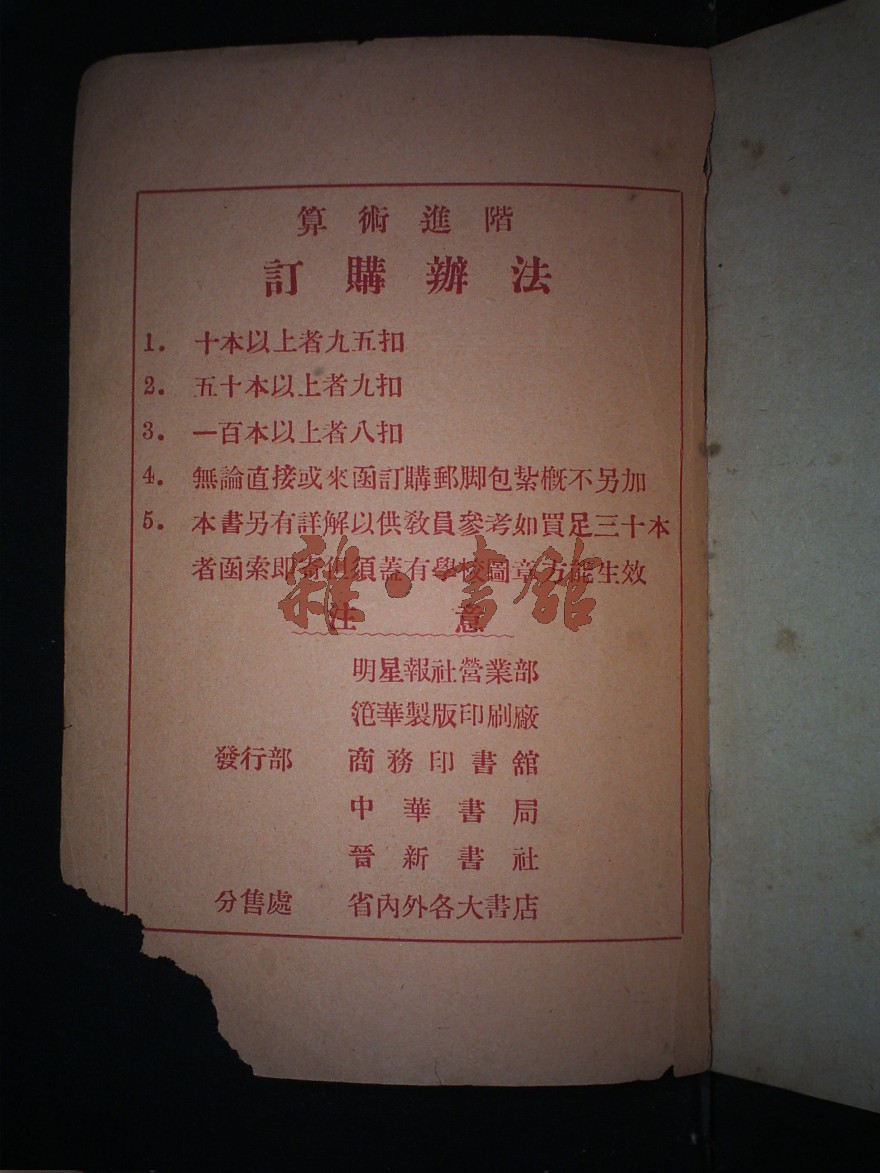 算術進階
訂購辦法
1. 十本以上者九五扣
2. 五十本以上者九扣
3. 一百本以上者八扣
4. 無論直接或來函訂購郵脚包紮概不另加
5. 本書另有詳解以供敎員參考如買足三十本
者函索即寄但須蓋有學校圖章方能生效
注意
明星報社營業部
范華製版印刷廠
發行部 商務印書館
中華書局
晉新書社
分售處 省內外各大書店
雜·書館